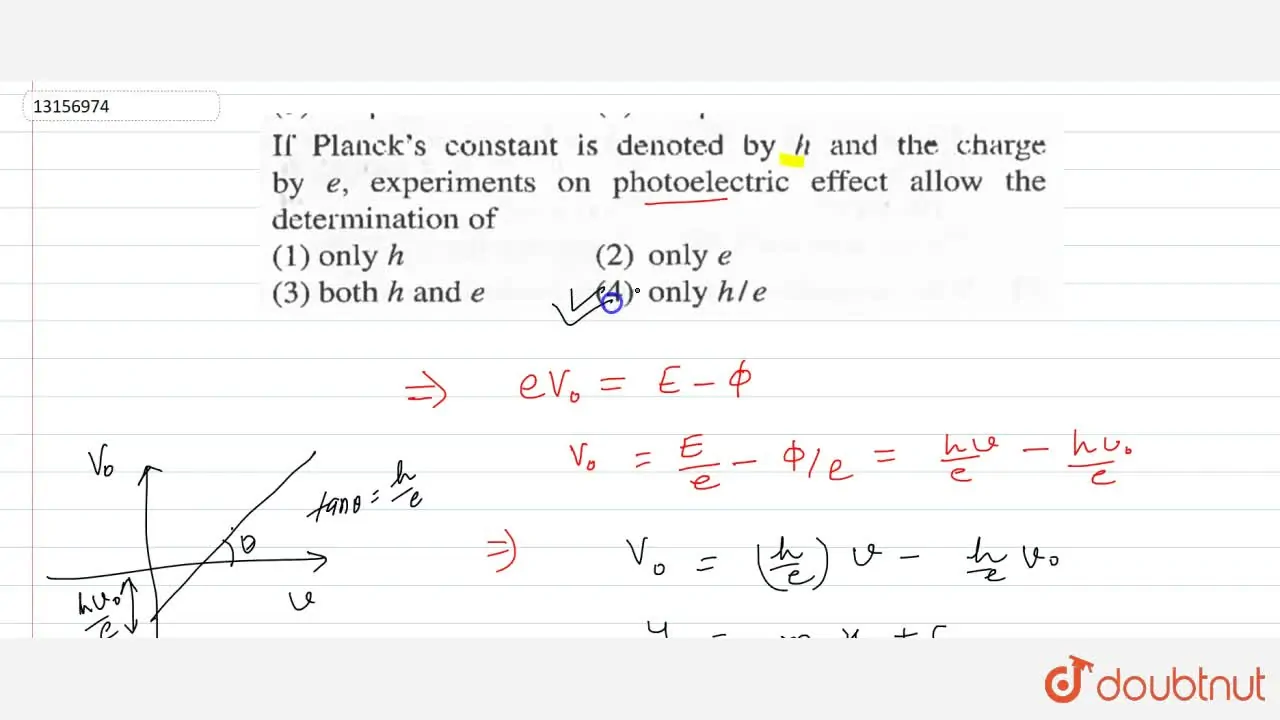 13156974
If Planck's constant is denoted by h and the charge
by e, experiments on photoelectric effect allow the
determination of
(1) only h (2) only e
(3) both h and e (4) only h/e
⇒ eV₀ = E – ϕ
V₀ = E/e – ϕ/e = hν/e – hν₀/e
V₀
tanθ = h/e
θ
ν
hν₀/e
⇒ V₀ = (h/e) ν – h/e ν₀
y = m x + c
doubtnut